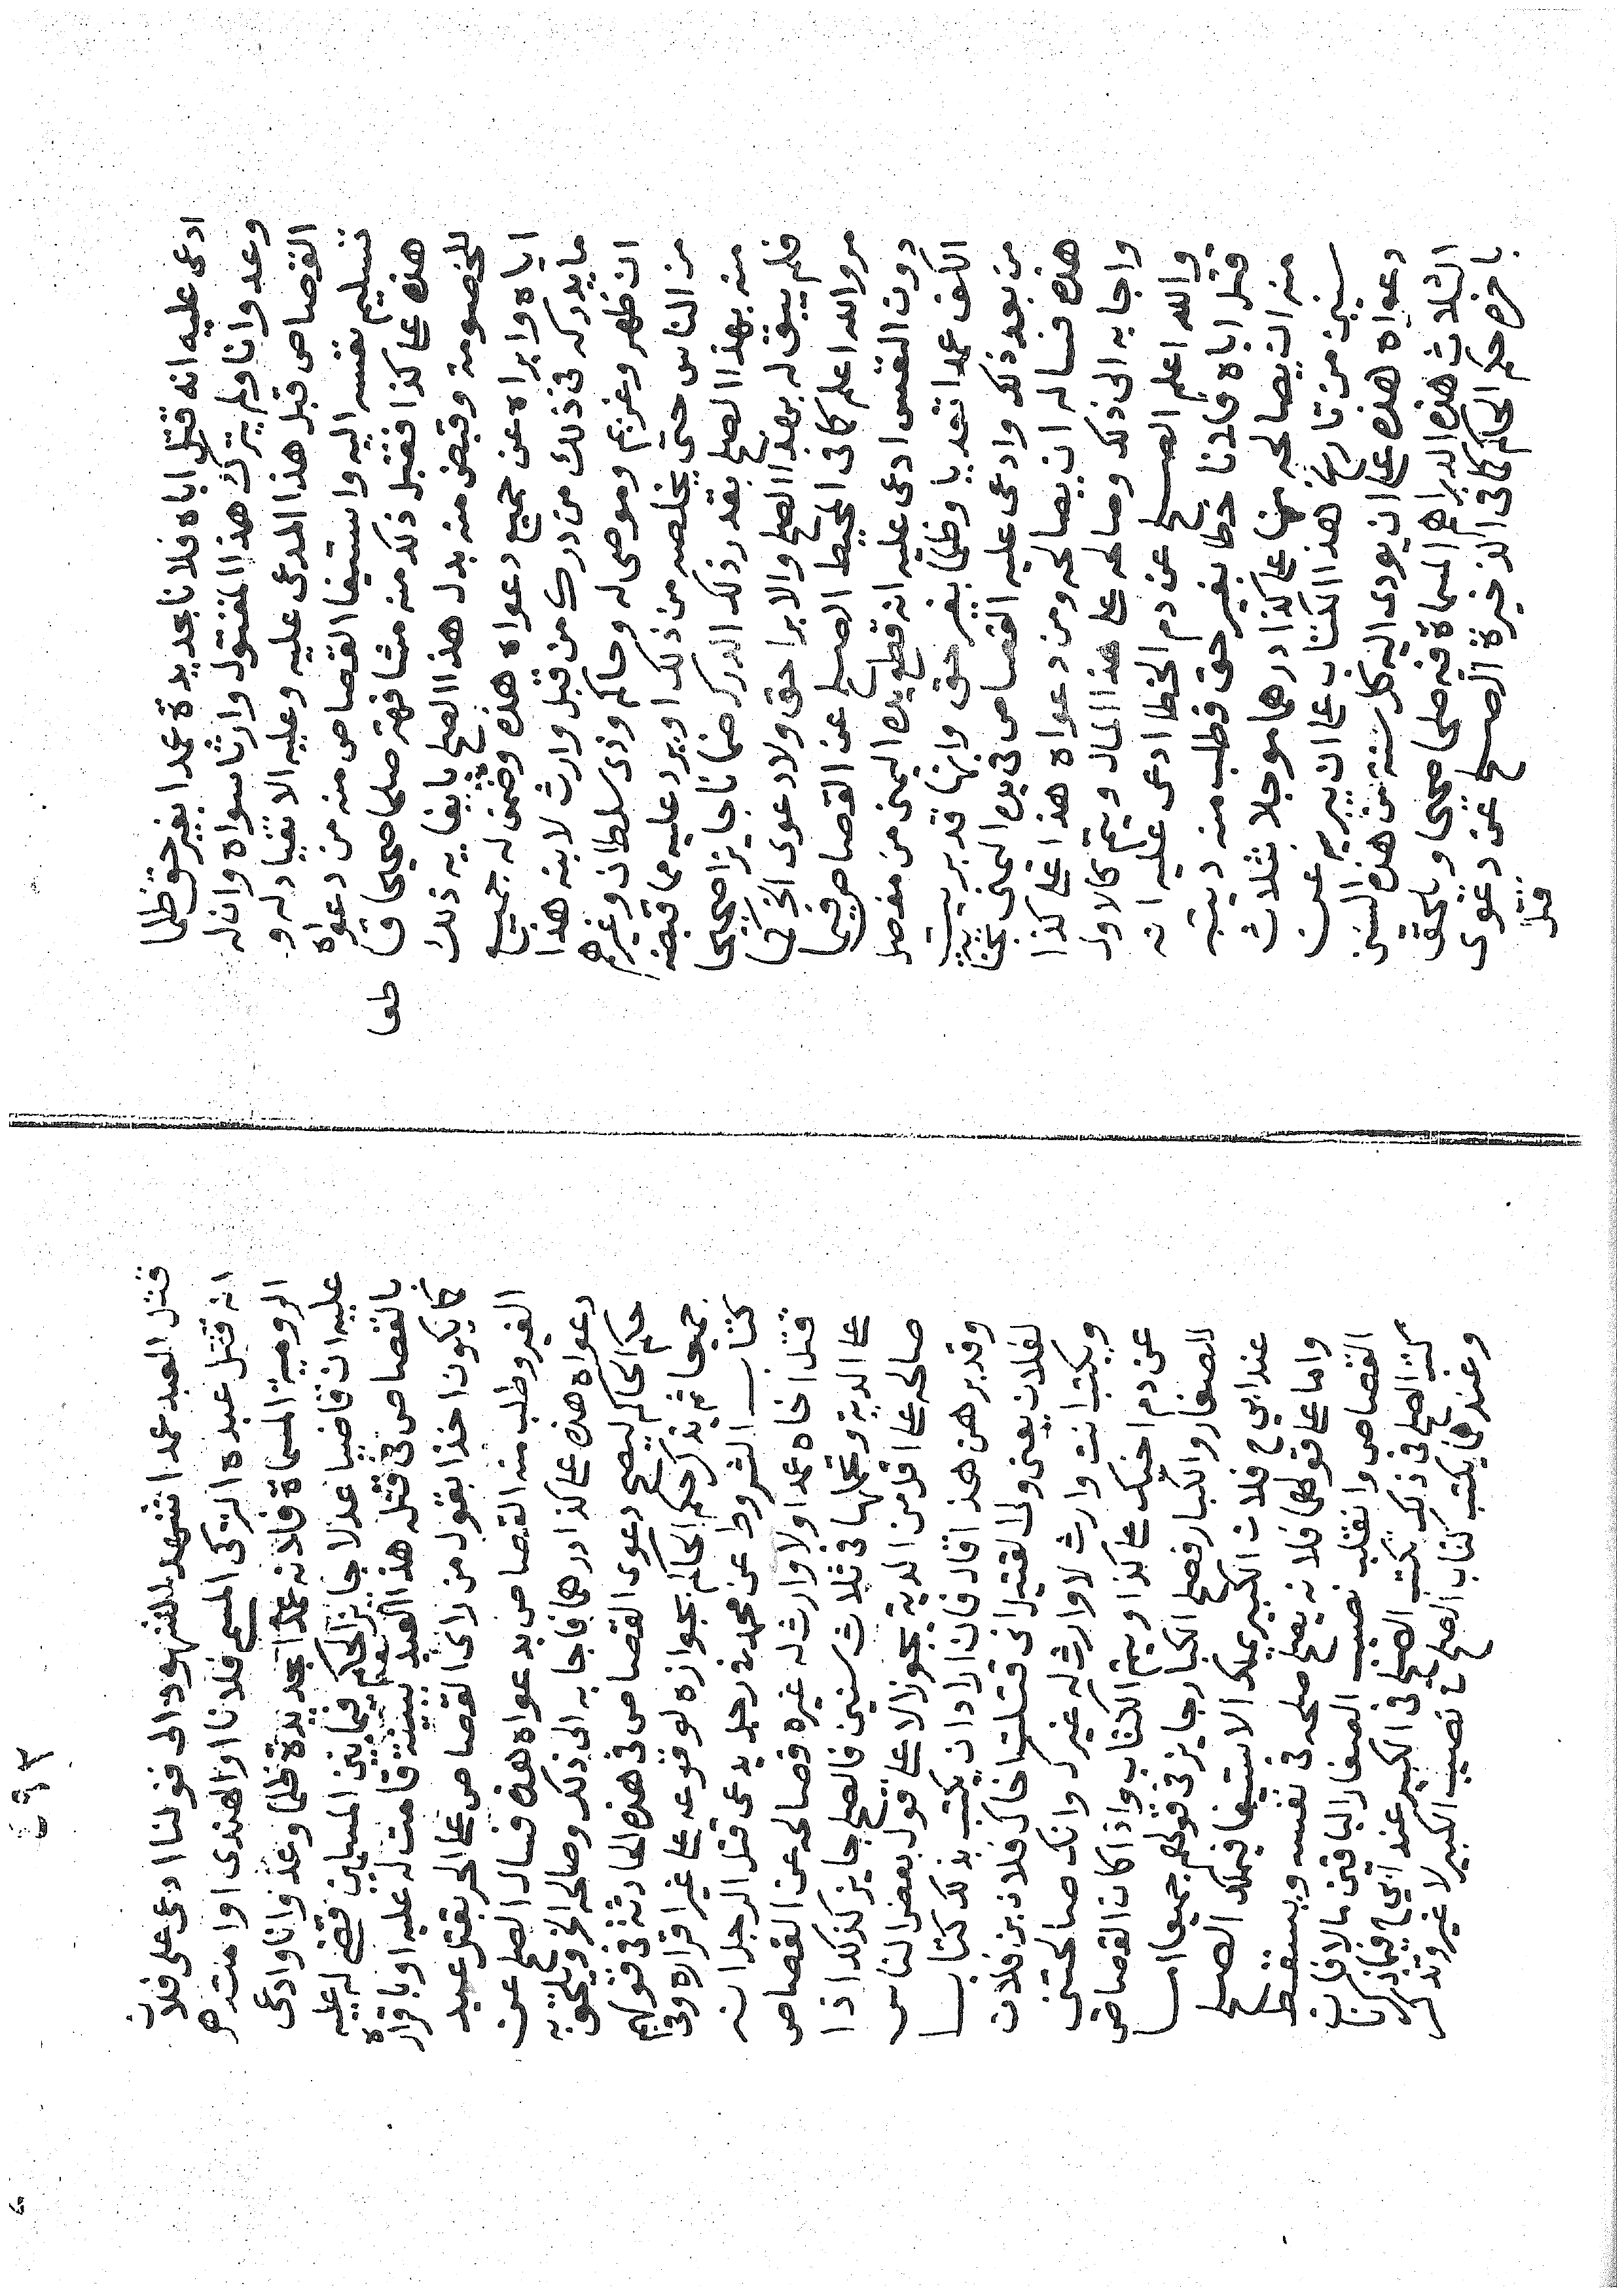 ادعى عليه انه قتل اباه فلانا بحديدة عمدا بغير حق ظلما
وعدوانا ولم يترك هذا المقتول وارثا سواه وان له
القصاص قبل هذا المدعى عليه وعليه الانقياد له و
تسليم نفسه اليه واستيفا القصاص منه من دعواه
هذه على كذا فقبل ذلك منه مشافهة صلحا صحيحا ق طعا
للخصومة وقبض منه بدل هذا الصلح بايفايه ذلك
اياه وابراه عن جميع دعواه هذه وضمن له جميع
ما يدركه فى ذلك من درك من قبل وارث لابنه هذا
ان ظهر وغريم وموصى له وحاكم وذى سلطان وغيرهم
من الناس حتى يخلصه من ذلك او يرد عليه مما قبضه
منه بهذا الصلح بقدر ذلك الدرك ضمانا جايزا صحيحا
فلم يبق له بهذا الصلح والابرا حق ولا دعوى الخ كما
مر والله اعلم كما فى المحيط الصلح عن القصاص فيما
دون النفس ادعى عليه انه قطع يده اليمنى من مفصل
الكف عمدا تعديا وظلما بغير حق وانها قد بريت
من بعد ذلك وادعى عليه القصاص فى يده اليمنى بجنايته
هذه فساله ان يصالحه ومن دعواه هذا على كذا
واجابه الى ذلك وصالحه على هذا المال ويتم كالاول
والله اعلم الصلح عن دم الخطا ادعى عليه انه
قتل اباه فلانا خطا بغير حق فطلب منه ديته
منه ان يصالحه منها على كذا درهما موجلا بثلاث
سنين من تاريخ هذا الكتاب على ان يبريه عن
دعواه هذه على ان يودى اليه كل سنة من هذه السنين
الثلاث هذه الدراهم المسماة فيه صلحا صحيحا ويلحق
باخره حكم الحاكم كما فى الذخيرة الصلح عن دعوى
قتل
قتل العبد عمدا شهد الشهود الى قولنا ادعى على فلان
انه قتل عبده التركى المسمى فلانا او الهندى او امته
الرومية المسماة فلانة عمدا بحديدة ظلما وعدوانا وادعى
عليه ان قاضيا عدلا جايز الحكم فيما بين المسلمين قضى له عليه
بالقصاص فى قتله هذا العبد ببينة قامت له عليه او باقراره
كما يكون اخذا بقول من راى القصاص على الحر بقتل عبد
الغير وطلب منه القصاص بدعواه هذه فساله الصلح عن
دعواه هذه على كذا درهما فاجابه الى ذلك وصالحه الخ ويلحق به
حكم الحاكم ليصح دعوى القصاص فى هذه الحادثة فى قولهم
جميعا ثم يذكر حكم الحاكم بجوازه لوقوعه على غير اقراره وفى
كتاب الشروط عن محمد فى رجل يدعى قتل الرجل انه
قتل اخاه عمدا ولا وارث له غيره فصالحه عن القصاص
على الدية وتحملها فى ثلاث سنين فالصلح جايز كذلك اذا
صالحه على اقل من الدية يجوز الا على قول بعض الناس
وقد برهن هذا قال فان اراد ان يكتب بذلك كتابا
لفلان يعنى ولى القتيل انى قتلت اخاك فلان بن فلان
ويكتب انت وارث لا وارث له غيرك وانك صالحتنى
عن دم اخيك على كذا ويتم الكتاب واذا كان القصاص
للصغار والكبار فصلح الكبار جايز فى قولهم جميعا اما
عند ابي ح فلان الكبير يملك الاستيفا فيملك الصلح
واما على قولهما فلانه يصلح صلحه فى نفسه ويسقط
القصاص وانقلب نصيب الصغار الباقين مالا فان
كتب الصلح فى ذلك يكتب الصلح فى الكبير عند ابي ح فيما ذكرنا
وعندهما يكتب كتاب الصلح ع نصيب الكبير لا غير وتذكر